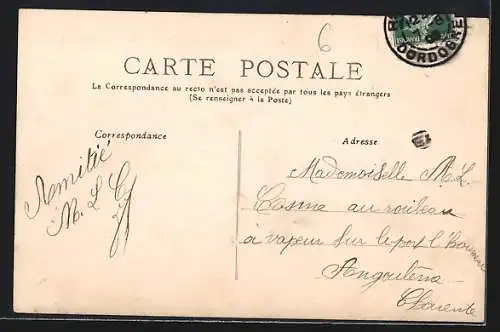 6
DORDOGNE
CARTE POSTALE
La Correspondance au recto n'est pas acceptée par tous les pays étrangers
(Se renseigner à la Poste)
Correspondance
Adresse
Amitié
M. L. C
Mademoiselle M. L.
Cosma au rouleau
à vapeur sur le port l'Houmeau
Angoulême
Charente